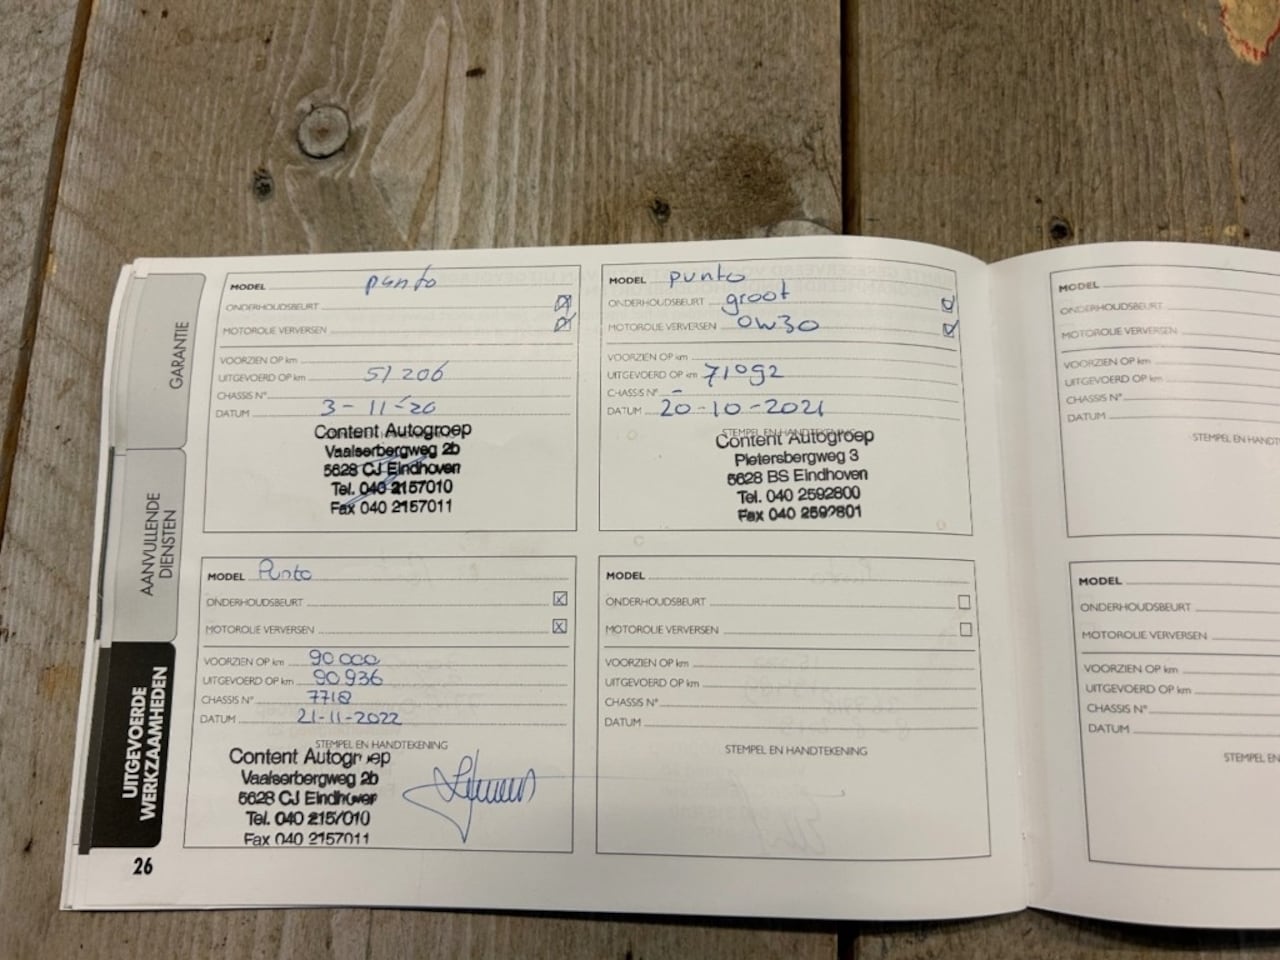 GARANTIE
AANVULLENDE DIENSTEN
UITGEVOERDE WERKZAAMHEDEN
MODEL punto
ONDERHOUDSBEURT
MOTOROLIE VERVERSEN
VOORZIEN OP km
UITGEVOERD OP km 51 206
CHASSIS N°
DATUM 3-11-20
Content Autogroep
Vaalserbergweg 2b
5628 CJ Eindhoven
Tel. 040 2157010
Fax 040 2157011
MODEL punto
ONDERHOUDSBEURT groot
MOTOROLIE VERVERSEN 0W30
VOORZIEN OP km
UITGEVOERD OP km 71092
CHASSIS N° -
DATUM 20-10-2021
STEMPEL EN HANDTEKENING
Content Autogroep
Pietersbergweg 3
5628 BS Eindhoven
Tel. 040 2592800
Fax 040 2592801
MODEL Punto
ONDERHOUDSBEURT X
MOTOROLIE VERVERSEN X
VOORZIEN OP km 90 000
UITGEVOERD OP km 90 936
CHASSIS N° 7718
DATUM 21-11-2022
STEMPEL EN HANDTEKENING
Content Autogroep
Vaalserbergweg 2b
5628 CJ Eindhoven
Tel. 040 2157010
Fax 040 2157011
MODEL
ONDERHOUDSBEURT
MOTOROLIE VERVERSEN
VOORZIEN OP km
UITGEVOERD OP km
CHASSIS N°
DATUM
STEMPEL EN HANDTEKENING
26
MODEL
ONDERHOUDSBEURT
MOTOROLIE VERVERSEN
VOORZIEN OP km
UITGEVOERD OP km
CHASSIS N°
DATUM
STEMPEL EN HANDT
MODEL
ONDERHOUDSBEURT
MOTOROLIE VERVERSEN
VOORZIEN OP km
UITGEVOERD OP km
CHASSIS N°
DATUM
STEMPEL EN